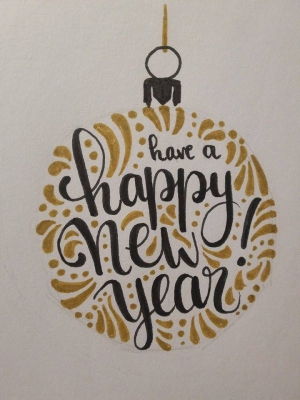 have a
happy
new
year!